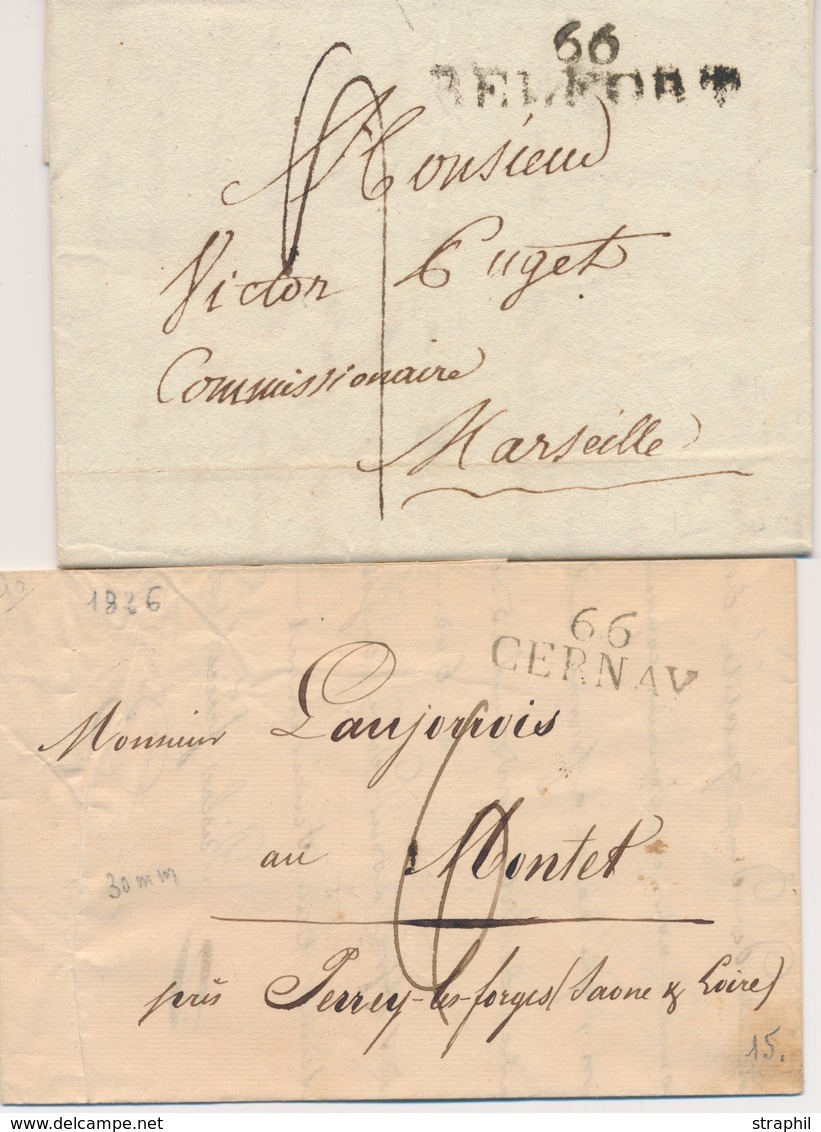 66
BELFORT
Monsieur
Victor Puget
Commissionaire
Marseille
1826
66
CERNAY
Monsieur Laujorrois
au Montet
6
30 mm
près Perrey-les-forges (Saone & Loire)
15.
straphil
delcampe.net